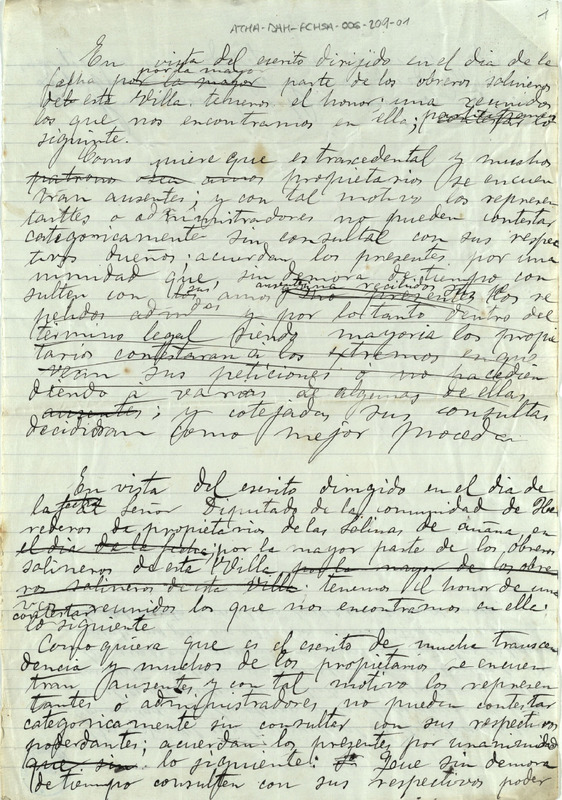 ATHA-DAH-FCHSA-006-209-01
1
En vista del escrito dirijido en el dia de la
por la mayor
fecha por la mayor parte de los obreros salineros
del esta Villa. tenemos el honor una reunidos
los que nos encontramos en ella; contestar lo
siguiente.
Como quiere que es trascedental y muchos
patrono sea amos propietarios se encuen
tran ausentes; y con tal motivo los represen
tanttes o administradores no pueden contestar
categoricamente sin consultal con sus respec
tivos dueños; acuerdan los presentes por una
nimidad que, sin demora de tiempo con
sulten con los sus amos
y por lo tanto dentro del
termino legal siendo mayoria los propie
tarios contestaran a los extremos en que
versan sus peticiones ó no haceedien
diendo á varias ad algunas de ella,
ausentes; y cotejadas sus consultas
decididiran como mejor proceda

En vista del escrito dirigido en el dia de
la fecha al Señor Diputado de la comunidad de He
rederos de propietarios de las Salinas de añana en
el dia de la fecha, por la mayor parte de los obreros
salineros de esta Villa, por la mayor de los obre
ros salineros de esta Villa: tenemos el honor de una
vez reunidos los que nos encontramos en ella:
contestar
lo siguiente
Como quiera que es el escrito de mucha transcen
dencia y muchos de los propietarios se encuen
tran ausentes, y con tal motivo los represen
tantes o administradores no pueden contestar
categoricamente sin consulter con sus respectivos
poderdantes; acuerdan los presentes por unanimidad
que sin lo siguiente: Que sin demora
de tiempo consulten con sus respectivos poder